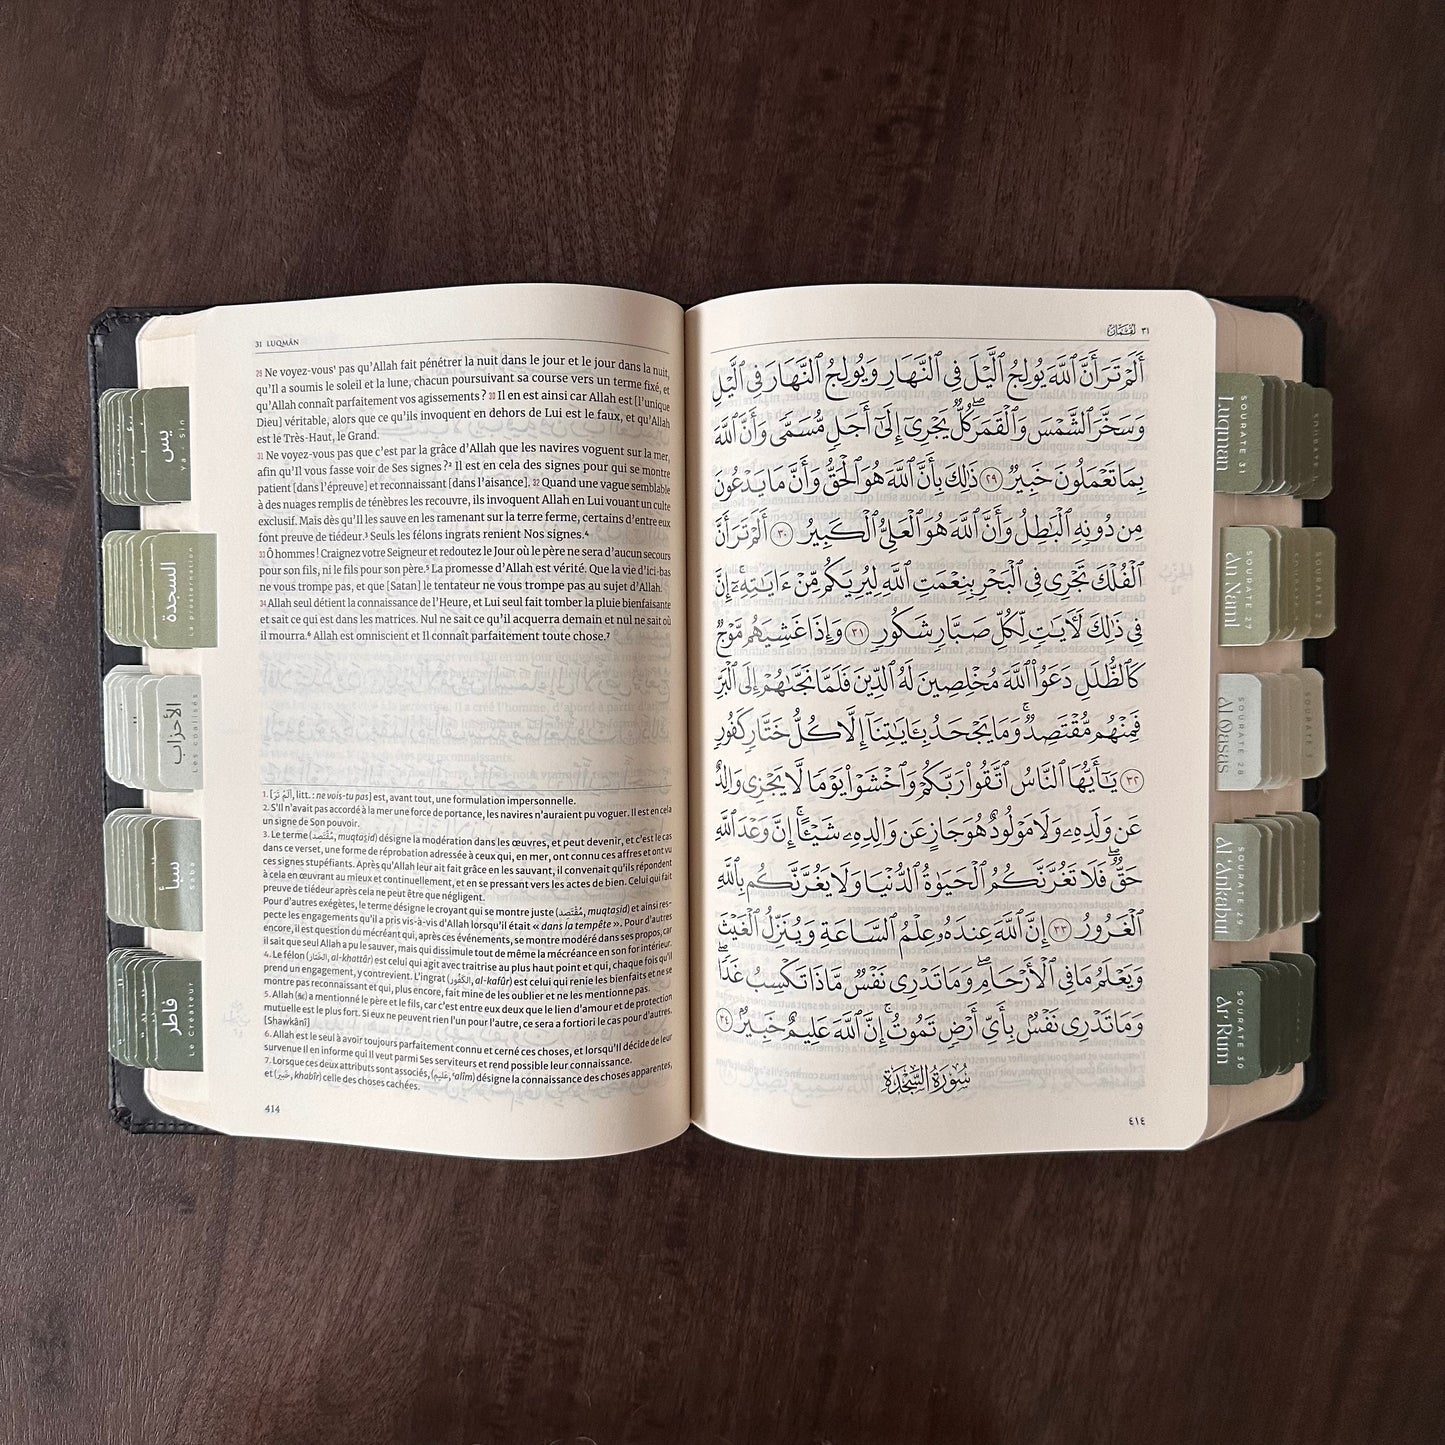 31 LUQMÂN
29 Ne voyez-vous¹ pas qu'Allah fait pénétrer la nuit dans le jour et le jour dans la nuit,
qu'Il a soumis le soleil et la lune, chacun poursuivant sa course vers un terme fixé, et
qu'Allah connaît parfaitement vos agissements ? 30 Il en est ainsi car Allah est [l'unique
Dieu] véritable, alors que ce qu'ils invoquent en dehors de Lui est le faux, et qu'Allah
est le Très-Haut, le Grand.
31 Ne voyez-vous pas que c'est par la grâce d'Allah que les navires voguent sur la mer,
afin qu'Il vous fasse voir de Ses signes ?² Il est en cela des signes pour qui se montre
patient [dans l'épreuve] et reconnaissant [dans l'aisance]. 32 Quand une vague semblable
à des nuages remplis de ténèbres les recouvre, ils invoquent Allah en Lui vouant un culte
exclusif. Mais dès qu'Il les sauve en les ramenant sur la terre ferme, certains d'entre eux
font preuve de tiédeur.³ Seuls les félons ingrats renient Nos signes.⁴
33 Ô hommes ! Craignez votre Seigneur et redoutez le Jour où le père ne sera d'aucun secours
pour son fils, ni le fils pour son père.⁵ La promesse d'Allah est vérité. Que la vie d'ici-bas
ne vous trompe pas, et que [Satan] le tentateur ne vous trompe pas au sujet d'Allah.
34 Allah seul détient la connaissance de l'Heure, et Lui seul fait tomber la pluie bienfaisante
et sait ce qui est dans les matrices. Nul ne sait ce qu'il acquerra demain et nul ne sait où
il mourra.⁶ Allah est omniscient et Il connaît parfaitement toute chose.⁷
1. [أَلَمْ تَرَ, litt. : ne vois-tu pas] est, avant tout, une formulation impersonnelle.
2. S'Il n'avait pas accordé à la mer une force de portance, les navires n'auraient pu voguer. Il est en cela
un signe de Son pouvoir.
3. Le terme (مُقْتَصِد, muqtaṣid) désigne la modération dans les œuvres, et peut devenir, et c'est le cas
dans ce verset, une forme de réprobation adressée à ceux qui, en mer, ont connu ces affres et ont vu
ces signes stupéfiants. Après qu'Allah leur ait fait grâce en les sauvant, il convenait qu'ils répondent
à cela en œuvrant au mieux et continuellement, et en se pressant vers les actes de bien. Celui qui fait
preuve de tiédeur après cela ne peut être que négligent.
Pour d'autres exégètes, le terme désigne le croyant qui se montre juste (مُقْتَصِد, muqtaṣid) et ainsi res-
pecte les engagements qu'il a pris vis-à-vis d'Allah lorsqu'il était « dans la tempête ». Pour d'autres
encore, il est question du mécréant qui, après ces événements, se montre modéré dans ses propos, car
il sait que seul Allah a pu le sauver, mais qui dissimule tout de même la mécréance en son for intérieur.
4. Le félon (الخَتَّار, al-khattâr) est celui qui agit avec traitrise au plus haut point et qui, chaque fois qu'il
prend un engagement, y contrevient. L'ingrat (الكَفُور, al-kafûr) est celui qui renie les bienfaits et ne se
montre pas reconnaissant et qui, plus encore, fait mine de les oublier et ne les mentionne pas.
5. Allah (ﷻ) a mentionné le père et le fils, car c'est entre eux deux que le lien d'amour et de protection
mutuelle est le plus fort. Si eux ne peuvent rien l'un pour l'autre, ce sera a fortiori le cas pour d'autres.
[Shawkânî]
6. Allah est le seul à avoir toujours parfaitement connu et cerné ces choses, et lorsqu'Il décide de leur
survenue Il en informe qui Il veut parmi Ses serviteurs et rend possible leur connaissance.
7. Lorsque ces deux attributs sont associés, (عَلِيم, 'alîm) désigne la connaissance des choses apparentes,
et (خَبِير, khabîr) celle des choses cachées.
414
٣١ لُقْمَان
أَلَمْ تَرَ أَنَّ ٱللَّهَ يُولِجُ ٱلَّيْلَ فِي ٱلنَّهَارِ وَيُولِجُ ٱلنَّهَارَ فِي ٱلَّيْلِ
وَسَخَّرَ ٱلشَّمْسَ وَٱلْقَمَرَۖ كُلٌّ يَجْرِىٓ إِلَىٰٓ أَجَلٍ مُّسَمًّى وَأَنَّ ٱللَّهَ
بِمَا تَعْمَلُونَ خَبِيرٌ ٢٩ ذَٰلِكَ بِأَنَّ ٱللَّهَ هُوَ ٱلْحَقُّ وَأَنَّ مَا يَدْعُونَ
مِن دُونِهِ ٱلْبَٰطِلُ وَأَنَّ ٱللَّهَ هُوَ ٱلْعَلِيُّ ٱلْكَبِيرُ ٣٠ أَلَمْ تَرَ أَنَّ
ٱلْفُلْكَ تَجْرِى فِى ٱلْبَحْرِ بِنِعْمَتِ ٱللَّهِ لِيُرِيَكُم مِّنْ ءَايَٰتِهِۦٓۚ إِنَّ
فِى ذَٰلِكَ لَءَايَٰتٍ لِّكُلِّ صَبَّارٍ شَكُورٍ ٣١ وَإِذَا غَشِيَهُم مَّوْجٌ
كَٱلظُّلَلِ دَعَوُا۟ ٱللَّهَ مُخْلِصِينَ لَهُ ٱلدِّينَ فَلَمَّا نَجَّىٰهُمْ إِلَى ٱلْبَرِّ
فَمِنْهُم مُّقْتَصِدٌۚ وَمَا يَجْحَدُ بِـَٔايَٰتِنَآ إِلَّا كُلُّ خَتَّارٍ كَفُورٍ
٣٢ يَٰٓأَيُّهَا ٱلنَّاسُ ٱتَّقُوا۟ رَبَّكُمْ وَٱخْشَوْا۟ يَوْمًا لَّا يَجْزِى وَالِدٌ
عَن وَلَدِهِۦ وَلَا مَوْلُودٌ هُوَ جَازٍ عَن وَالِدِهِۦ شَيْـًٔاۚ إِنَّ وَعْدَ ٱللَّهِ
حَقٌّۖ فَلَا تَغُرَّنَّكُمُ ٱلْحَيَوٰةُ ٱلدُّنْيَا وَلَا يَغُرَّنَّكُم بِٱللَّهِ
ٱلْغَرُورُ ٣٣ إِنَّ ٱللَّهَ عِندَهُۥ عِلْمُ ٱلسَّاعَةِ وَيُنَزِّلُ ٱلْغَيْثَ
وَيَعْلَمُ مَا فِى ٱلْأَرْحَامِۖ وَمَا تَدْرِى نَفْسٌ مَّاذَا تَكْسِبُ غَدًاۖ
وَمَا تَدْرِى نَفْسٌۢ بِأَىِّ أَرْضٍ تَمُوتُۚ إِنَّ ٱللَّهَ عَلِيمٌ خَبِيرٌۢ ٣٤
سُورَةُ السَّجْدَةِ
٤١٤
يس
Ya - Sin
السجدة
La prosternation
الأحزاب
Les coalisés
سبأ
Saba
فاطر
Le Créateur
SOURATE 31
Luqman
SOURATE 27
An Naml
SOURATE 28
Al Qasas
SOURATE 29
Al 'Ankabut
SOURATE 30
Ar Rum